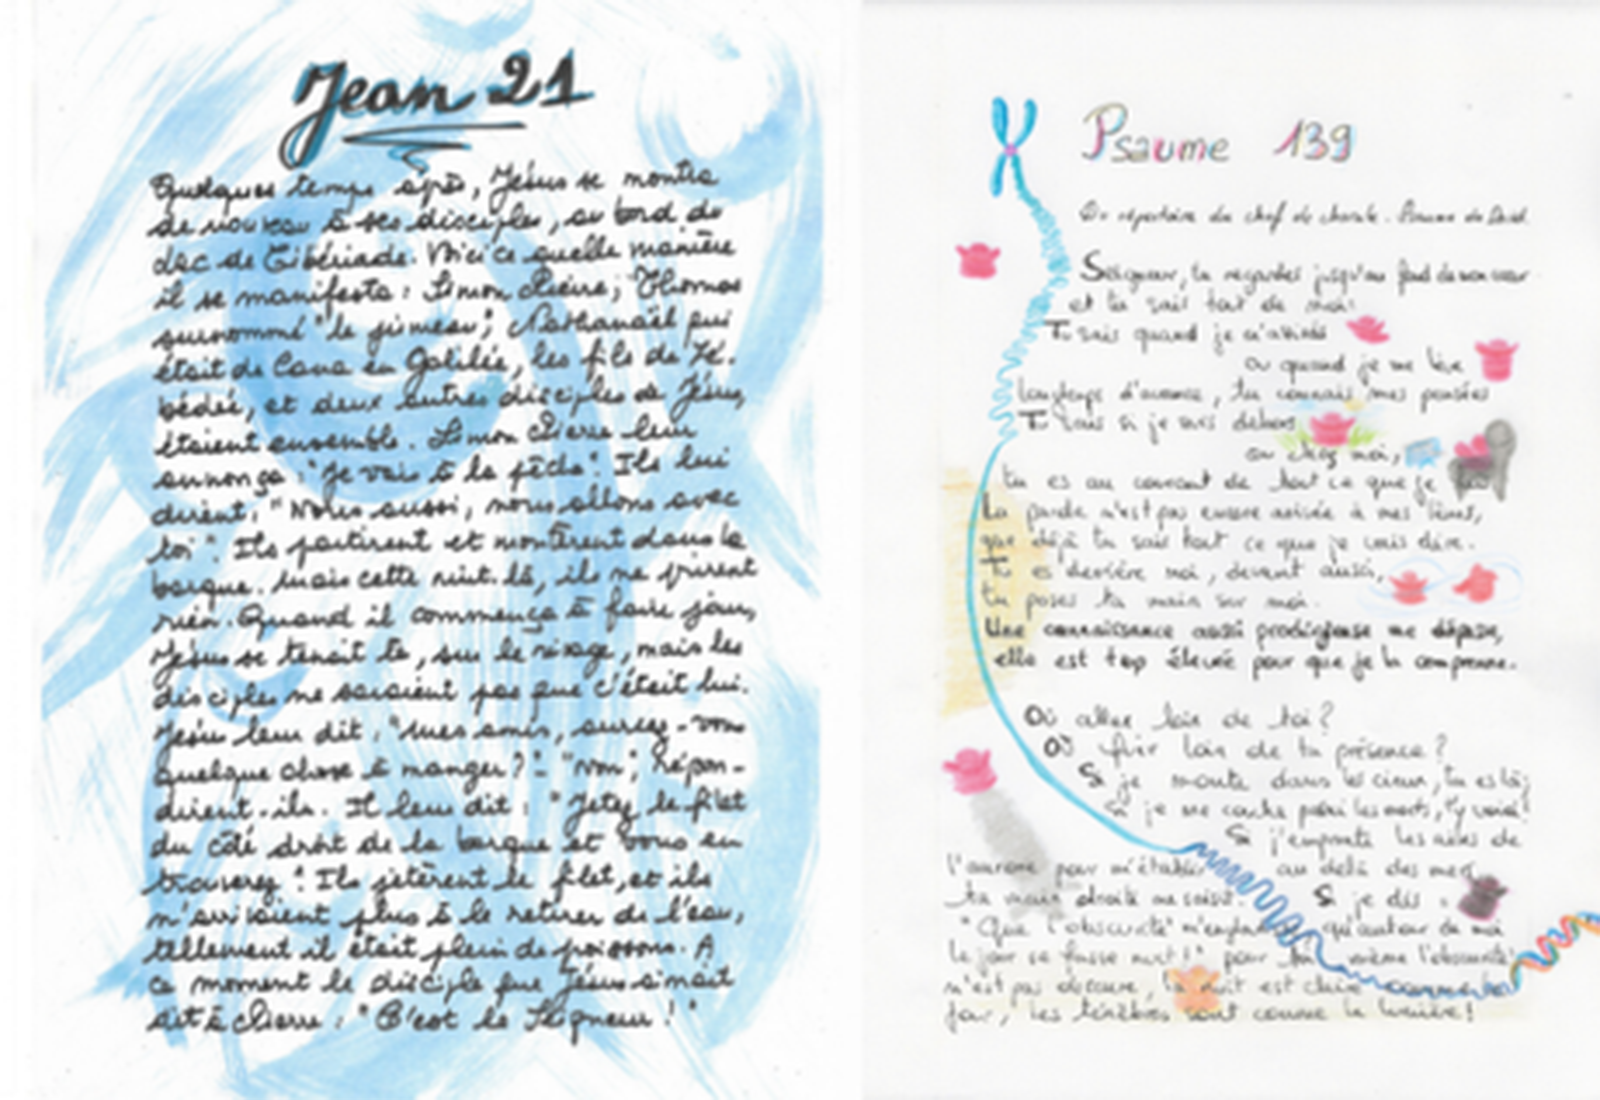 Jean 21
Quelques temps après, Jésus se montra
de nouveau à ses disciples, au bord du
lac de Tibériade. Voici de quelle manière
il se manifesta : Simon Pierre; Thomas
surnommé "le jumeau"; Nathanaël qui
était de Cana en Galilée, les fils de Zé-
bédée, et deux autres disciples de Jésus,
étaient ensemble. Simon Pierre leur
annonça : "Je vais à la pêche". Ils lui
dirent, "Nous aussi, nous allons avec
toi". Ils partirent et montèrent dans la
barque. Mais cette nuit-là, ils ne prirent
rien. Quand il commença à faire jour,
Jésus se tenait là, sur le rivage, mais les
disciples ne savaient pas que c'était lui.
Jésus leur dit : "mes amis, auriez-vous
quelque chose à manger ?" "non", répon-
dirent-ils. Il leur dit : "Jetez le filet
du côté droit de la barque et vous en
trouverez". Ils jetèrent le filet, et ils
n'arrivaient plus à le retirer de l'eau,
tellement il était plein de poissons. A
ce moment le disciple que Jésus aimait
dit à Pierre : "C'est le Seigneur !"
Psaume 139
Du répertoire du chef de chorale. Psaume de David.
Seigneur, tu regardes jusqu'au fond de mon cœur
et tu sais tout de moi:
Tu sais quand je m'assieds
ou quand je me lève
longtemps d'avance, tu connais mes pensées
Tu sais si je suis dehors
ou chez moi,
tu es au courant de tout ce que je
La parole n'est pas encore arrivée à mes lèvres,
que déjà tu sais tout ce que je vais dire.
Tu es derrière moi, devant aussi,
tu poses ta main sur moi.
Une connaissance aussi prodigieuse me dépasse,
elle est trop élevée pour que je la comprenne.
Où aller loin de toi ?
Où fuir loin de ta présence ?
Si je monte dans les cieux, tu es là;
Si je me cache parmi les morts, t'y voici!
Si j'emprunte les ailes de
l'aurore pour m'établir au delà des mers
ta main droite me saisit. Si je dis :
"Que l'obscurité m'engloutisse, qu'autour de moi
le jour se fasse nuit !" pour toi, même l'obscurité
n'est pas obscure, la nuit est claire comme le
jour, les ténèbres sont comme la lumière!